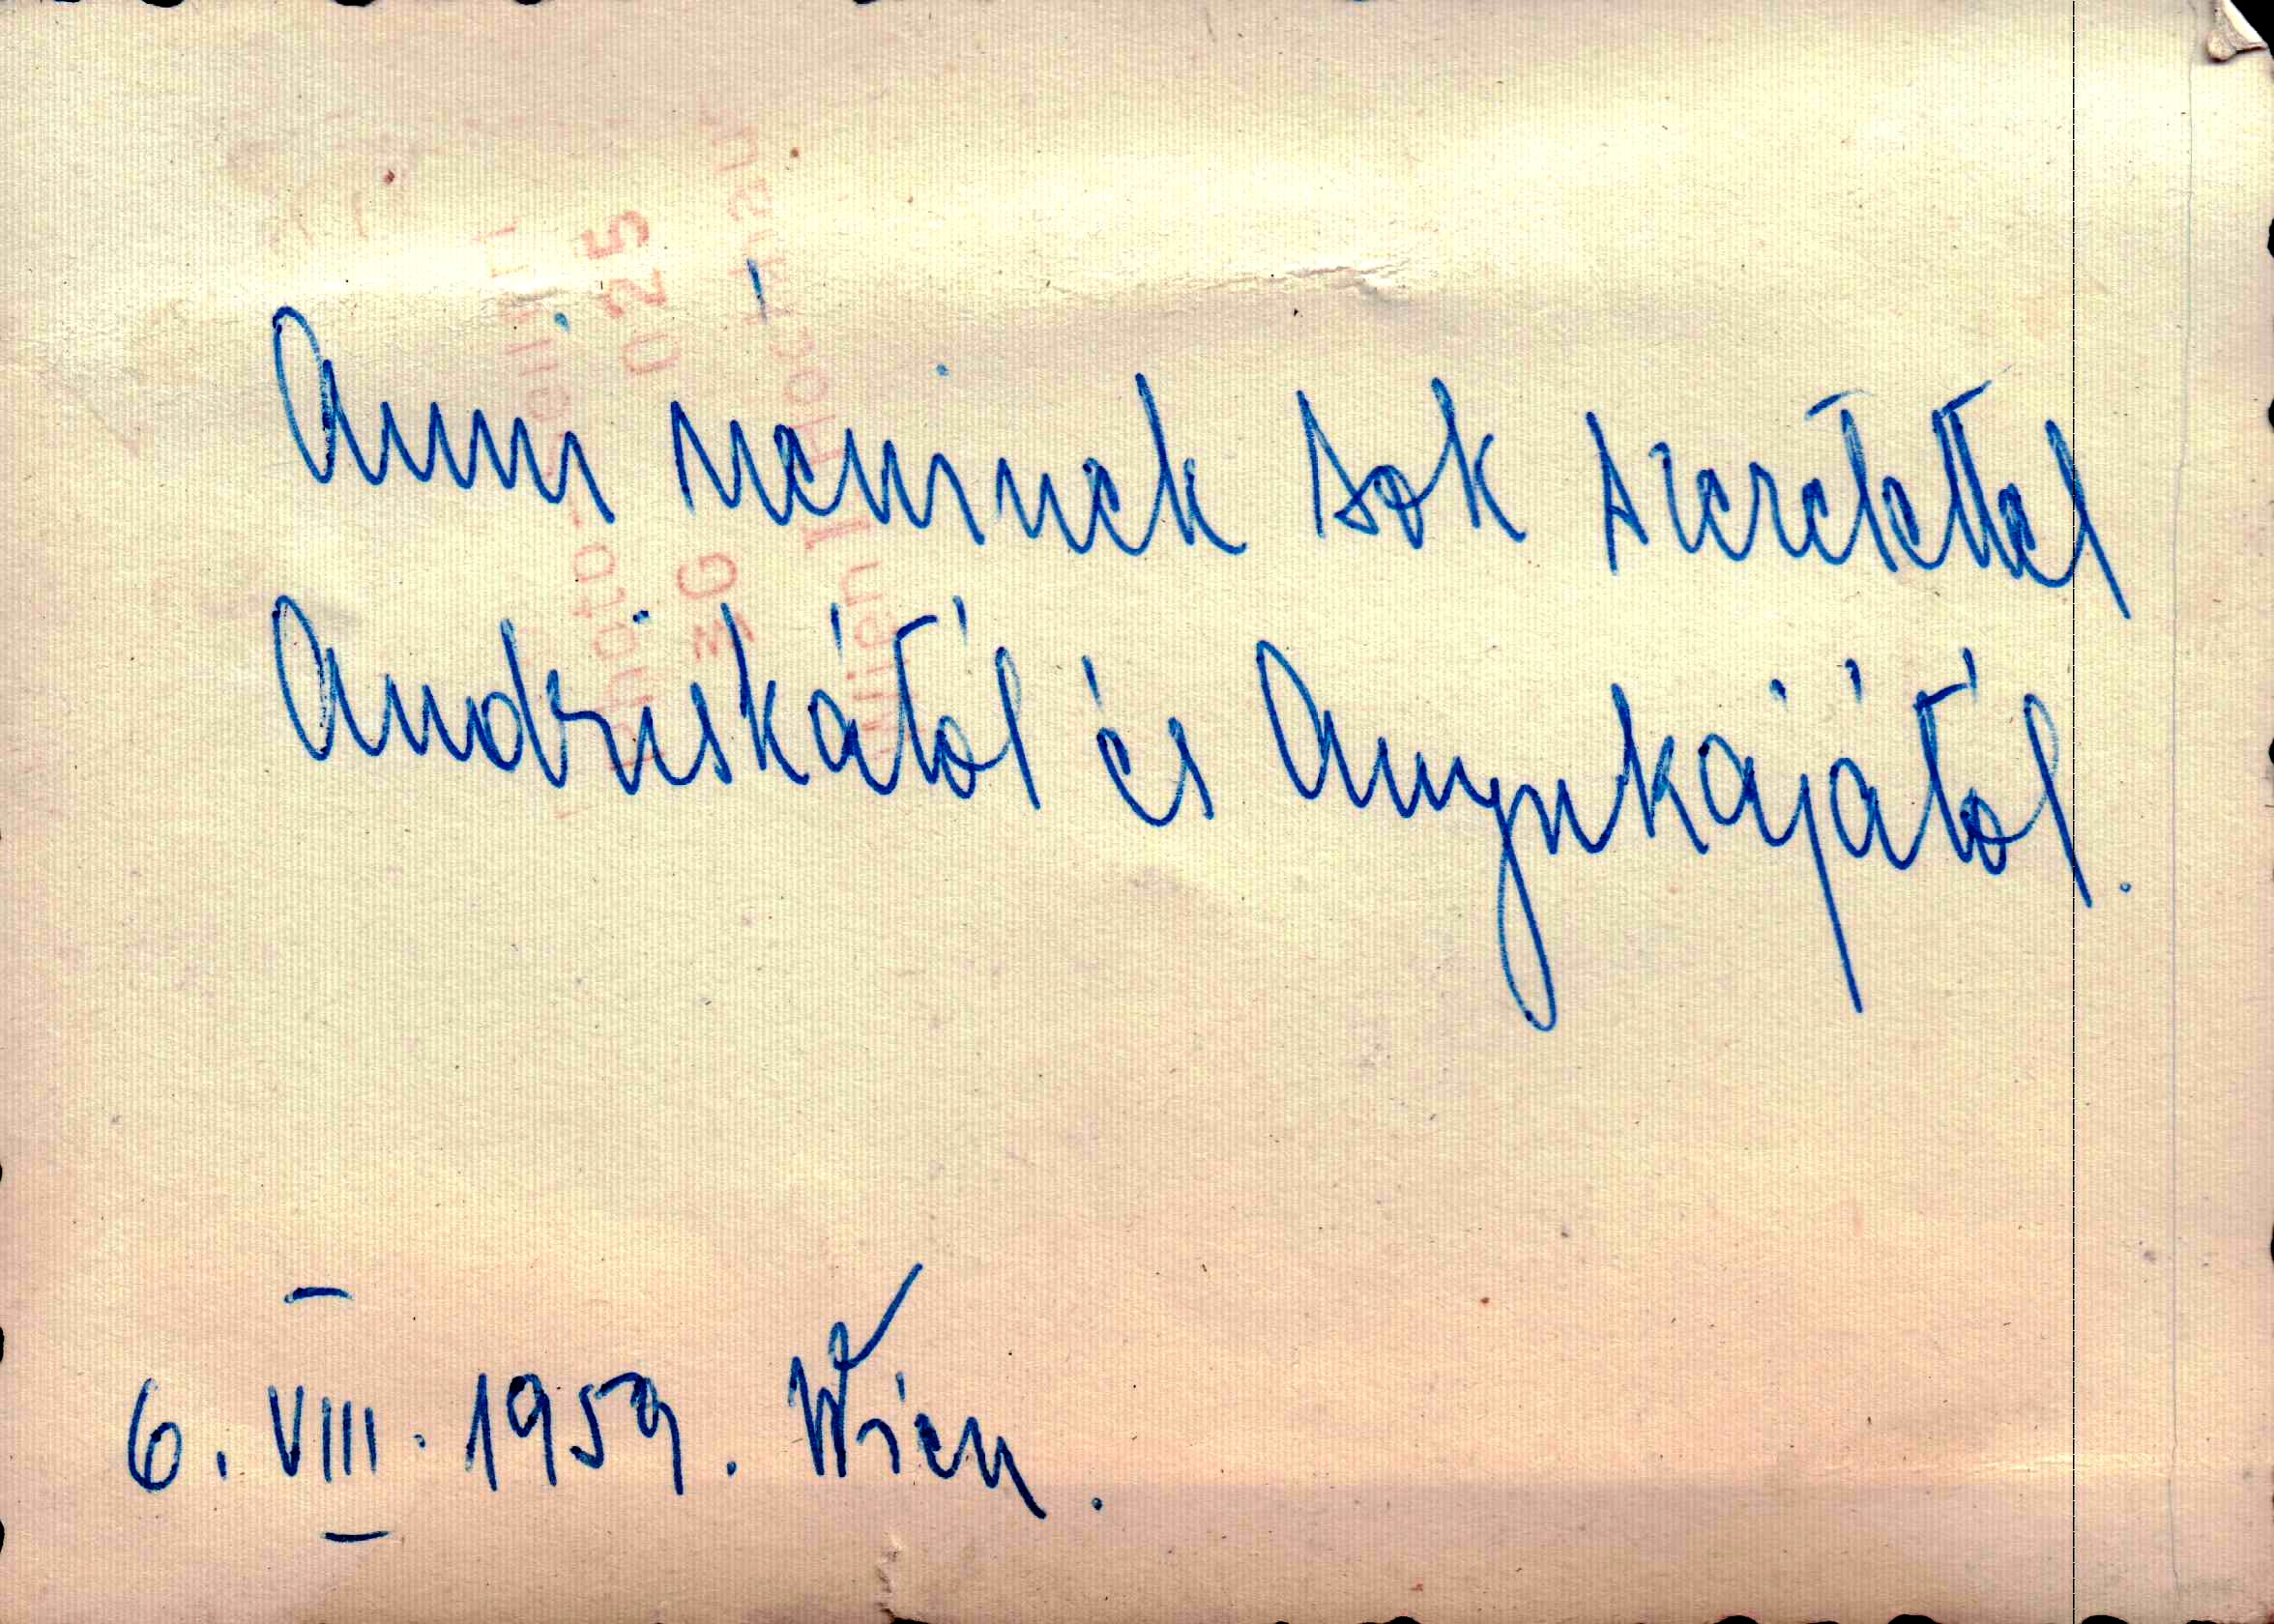 Anni néninek sok szeretettel
Andriskától és Anyukájától.
6. VIII. 1959. Wien.
Photo
3G 025
Wien I